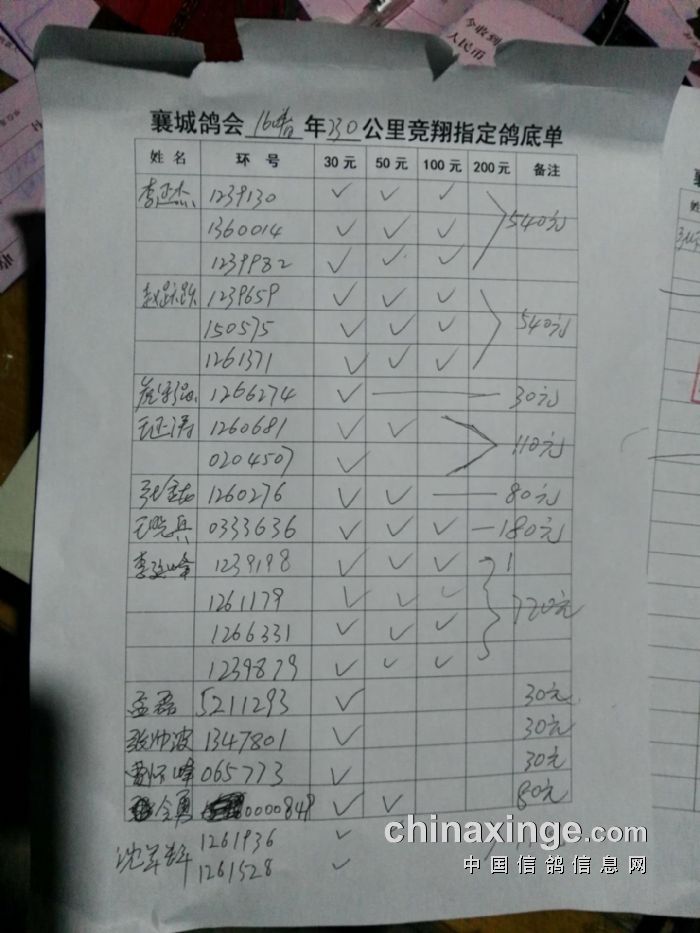 今收到
人民币
襄城鸽会 16春 年 230 公里竞翔指定鸽底单
姓 名 环 号 30元 50元 100元 200元 备注
1239130 ✓ ✓ ✓ 540元
1360014 ✓ ✓ ✓
1239982 ✓ ✓ ✓
1239659 ✓ ✓ ✓ 540元
150575 ✓ ✓ ✓
1261371 ✓ ✓ ✓
1266274 ✓ 30元
1260681 ✓ ✓ 110元
0204507 ✓
1260276 ✓ ✓ 80元
王晓兵 0333636 ✓ ✓ ✓ 180元
李延峰 1239198 ✓ ✓ ✓
1261179 ✓ ✓ ✓ 720元
1266331 ✓ ✓ ✓
1239879 ✓ ✓ ✓
孟磊 5211293 ✓ 30元
张帅波 1347801 ✓ 30元
峰 065773 ✓ 30元
0000848 ✓ ✓ 80元
1261936 ✓
1261528 ✓
chinaxinge.com
中国信鸽信息网